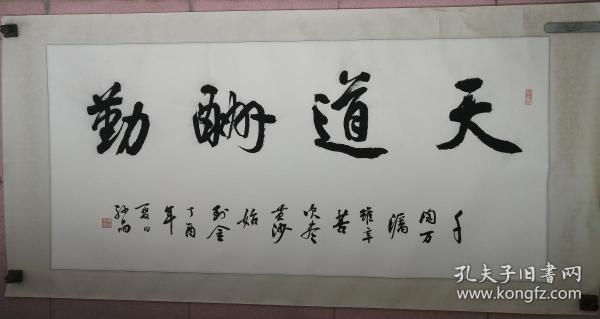 天道酬勤
千
淘万
漉
雖辛
苦
吹尽
黄沙
始
到金
丁酉
年
夏日
孔夫子旧書网
www.kongfz.com